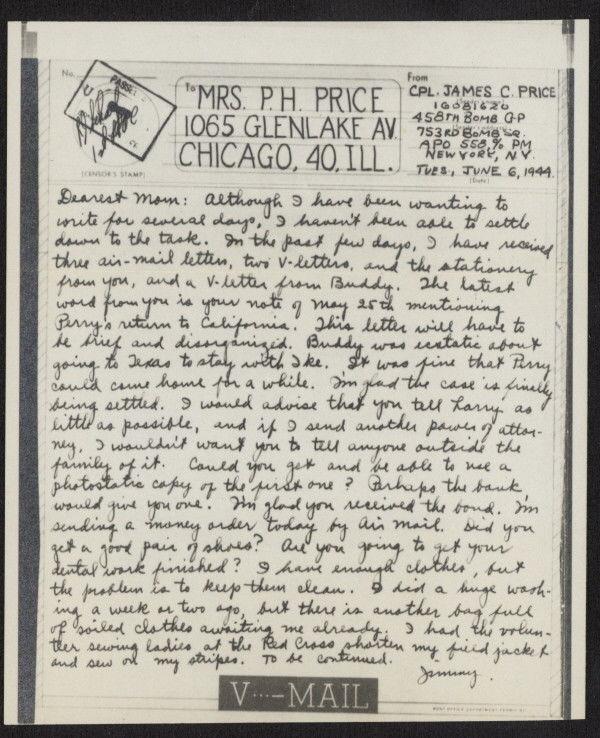 No.
PASSED
To
MRS. P. H. PRICE
1065 GLENLAKE AV.
CHICAGO, 40, ILL.
From
CPL. JAMES C. PRICE
16081620
458TH BOMB GP
753RD BOMB SQ.
APO 558, % PM
NEW YORK, N.Y.
TUES., JUNE 6, 1944.
(CENSOR'S STAMP)
(Date)
Dearest Mom: Although I have been wanting to
write for several days, I haven't been able to settle
down to the task. In the past few days, I have received
three air-mail letters, two V-letters, and the stationery
from you, and a V-letter from Buddy. The latest
word from you is your note of May 25th mentioning
Perry's return to California. This letter will have to
be brief and disorganized. Buddy was ecstatic about
going to Texas to stay with Ike. It was fine that Perry
could come home for a while. I'm glad the case is finally
being settled. I would advise that you tell Larry as
little as possible, and if I send another power of attor-
ney, I wouldn't want you to tell anyone outside the
family of it. Could you get and be able to use a
photostatic copy of the first one? Perhaps the bank
would give you one. I'm glad you received the bond. I'm
sending a money order today by air mail. Did you
get a good pair of shoes? Are you going to get your
dental work finished? I have enough clothes, but
the problem is to keep them clean. I did a huge wash-
ing a week or two ago, but there is another bag full
of soiled clothes awaiting me already. I had the volun-
teer sewing ladies at the Red Cross shorten my field jacket
and sew on my stripes. To be continued.
Jimmy.
V···—MAIL